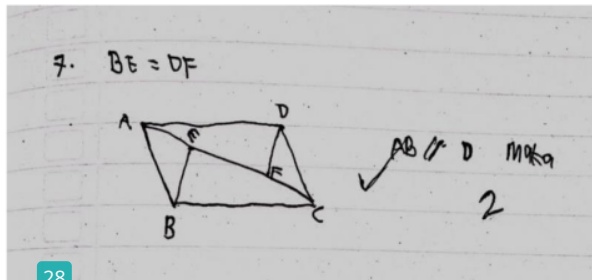 7. BE = DF
A D
E
F
B C
AB // D maka
2
28